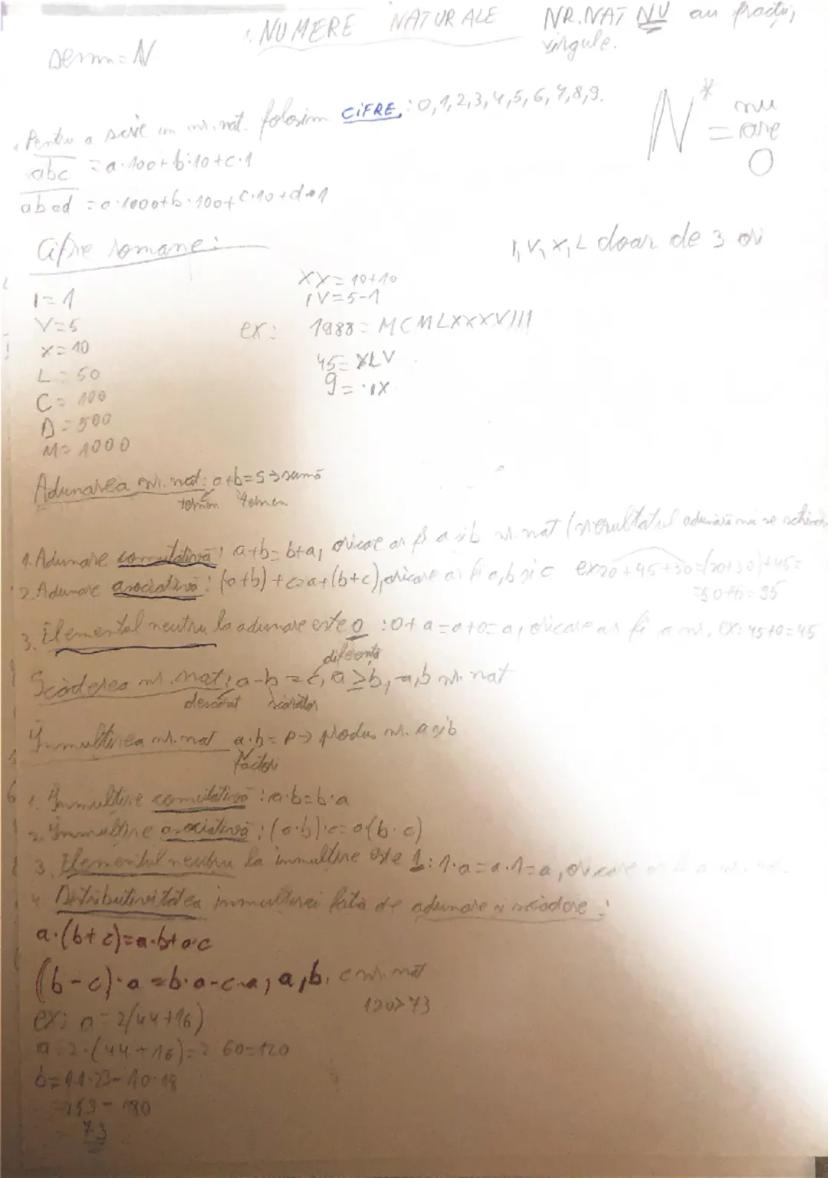 NUMERE NATURALE NR.NAT NU au fracții,
virgule.
Denm = N
Pentru a scrie un nr. nat. folosim CIFRE: 0,1,2,3,4,5,6,7,8,9.
N* = nu
are
0
abc = a·100+b·10+c·1
abcd = a·1000+b·100+c·10+d·1
Cifre romane:
I, V, X, L doar de 3 ori
I=1
V=5
X=10
L=50
C=100
D=500
M=1000
XX=10+10
IV=5-1
ex: 1988=MCMLXXXVIII
45=XLV
9=IX
Adunarea nr. nat: a+b=S→sumă
termen termen
1. Adunare comutativă: a+b=b+a, oricare ar fi a și b nr. nat (rezultatul adunării nu se schimbă
2. Adunare asociativă: (a+b)+c=a+(b+c), oricare ar fi a,b și c ex 20+45+30=(20+30)+45=
=50+45=95
3. Elementul neutru la adunare este 0: 0+a=a+0=a, oricare ar fi a nr, ex: 45+0=45
diferența
Scăderea nr. nat: a-b=c, a≥b, a,b nr. nat
descăzut scăzător
Înmulțirea nr. nat a·b=P→produs nr. a și b
factori
1. Înmulțire comutativă: a·b=b·a
2. Înmulțire asociativă: (a·b)·c=a(b·c)
3. Elementul neutru la înmulțire este 1: 1·a=a·1=a, oricare ar fi a nr.
4. Distributivitatea înmulțirei fată de adunare și scădere:
a·(b+c)=a·b+a·c
(b-c)·a=b·a-c·a, a,b, c nr. nat
ex: a=2(44+16)
120>73
a=2·(44+16)=2·60=120
b=11·23-10·18
=253-180
73